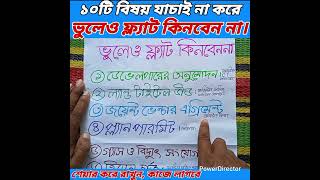 ১০টি বিষয় যাচাই না করে
ভুলেও ফ্ল্যাট কিনবেন না।
ভুলেও ফ্ল্যাট কিনবেননা
১ ডেভেলপারের অনুমোদন
২ ল্যান্ড টাইটেল ডীড
৩ জয়েন্ট ভেঞ্চার এগ্রিমেন্ট
৪ প্ল্যান পারমিট
৫ গ্যাস ও বিদ্যুৎ সংযোগ
PowerDirector
শেয়ার করে রাখুন, কাজে লাগবে